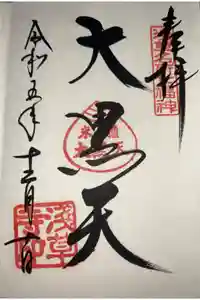 奉拝
浅草名所七福神
大黒天
令和五年十二月
浅草寺印